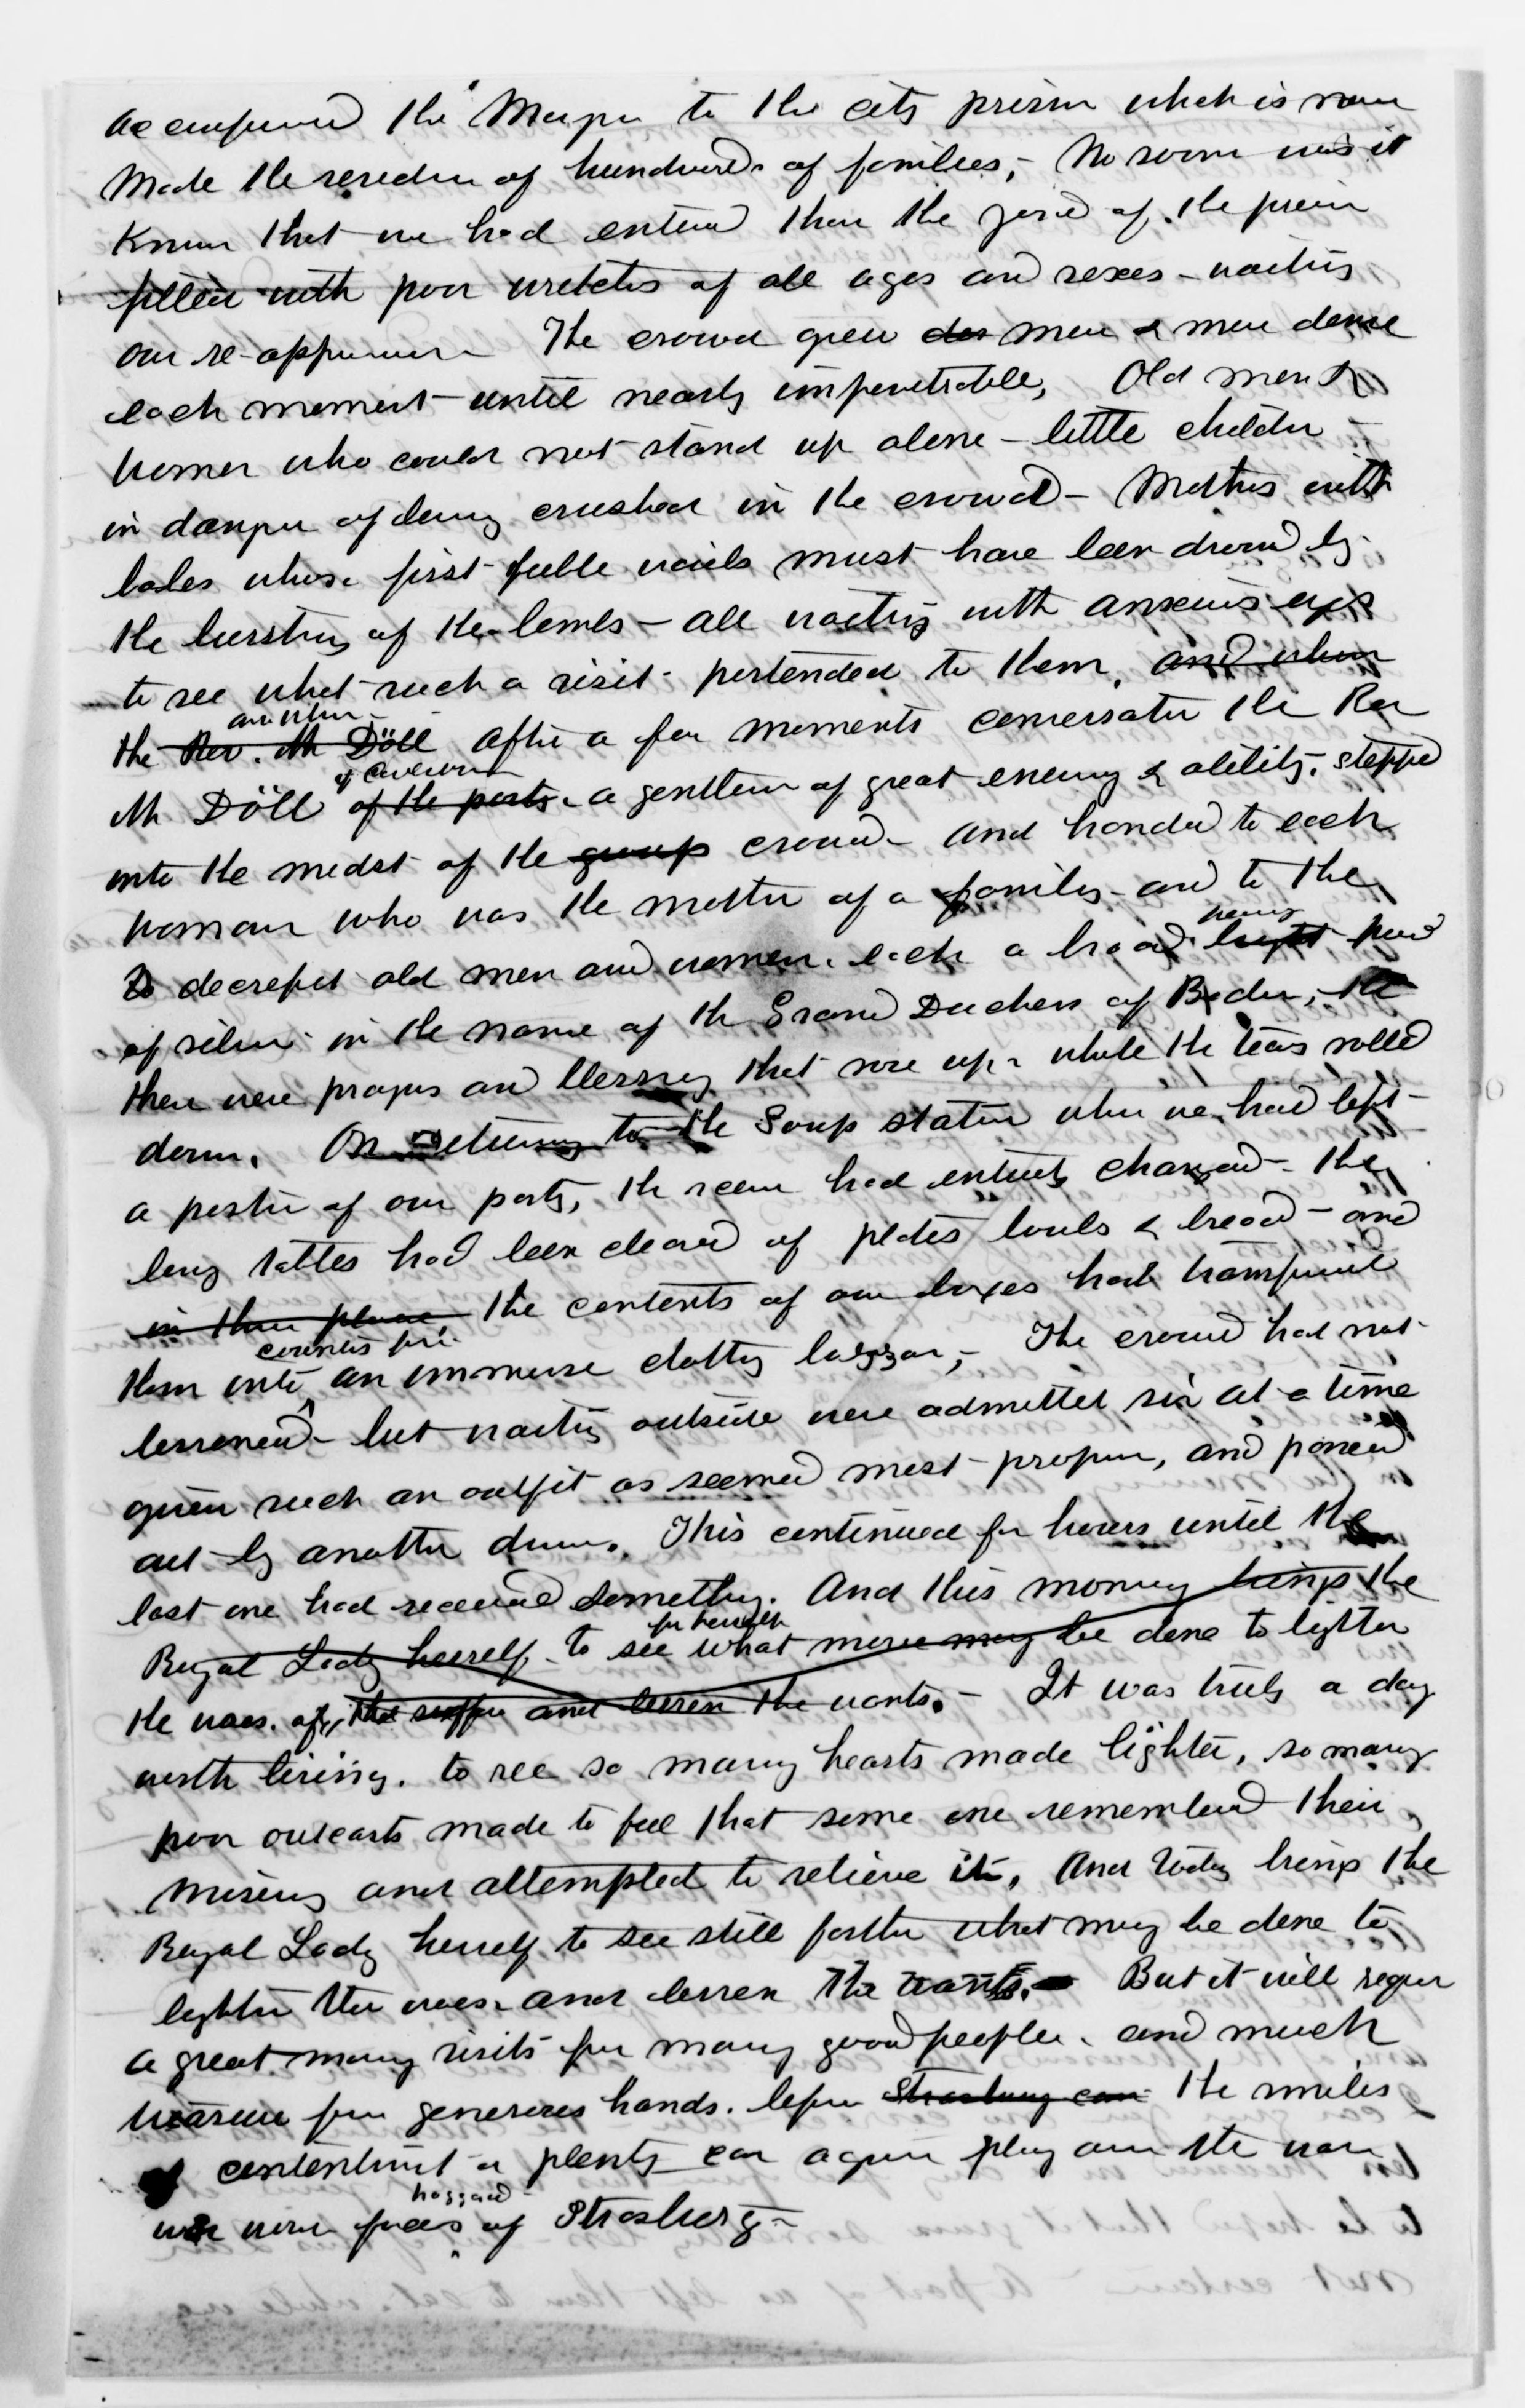 accompanied the Mayor to the city prison which is now
made the residence of hundreds of families, - No sooner was it
known that we had entered than the yard of the prison
filled with poor wretches of all ages and sexes - waiting
our re-appearance The crowd grew des more & more dense
each moment - until nearly impenetrable, Old men &
women who could not stand up alone - little children -
in danger of being crushed in the crowd - Mothers with
babes whose first feeble wails must have been drowned by
the bursting of the bombs - all waiting with anxious eyes
to see what such a visit portended to them, and when
and when
the Rev. Mr Döll after a few moments conversation the Rev
of Carlsruhe
Mr Döll of the party - a gentleman of great energy & ability, stepped
into the midst of the group crowd - and handed to each
woman who was the mother of a family - and to the
heavy
decrepit old men and women, each a broad bright piece
of silver in the name of the Grand Duchess of Baden, - the
there were prayers and blessings that rose up - while the tears rolled
down. On returning to the Soup station where we had left -
a portion of our party, the scene had entirely changed - the
long tables had been cleared of plates bowls & bread - and
in their place the contents of our boxes had transformed
counters for
them into an immense clothing bazzar, - The crowd had not
lessened - but waiting outside were admitted six at a time
given such an outfit as seemed most proper, and passed
out by another door. This continued for hours until the
last one had received something. And this morning brings the
for herself
Royal Lady herself, to see what more may be done to lighten
the woes of, the suffer and lessen the wants. - It was truly a day
worth living, to see so many hearts made lighter, so many
poor outcasts made to feel that some one remembered their
misery and attempted to relieve it, And today brings the
Royal Lady herself to see still farther what may be done to
lighten the woes and lessen the wants. But it will require
a great many visits from many good people, and much
treasure from generous hands, before Strasburg can the smiles
of contentment or plenty can again play over the
haggard
worn faces of Strasburg -